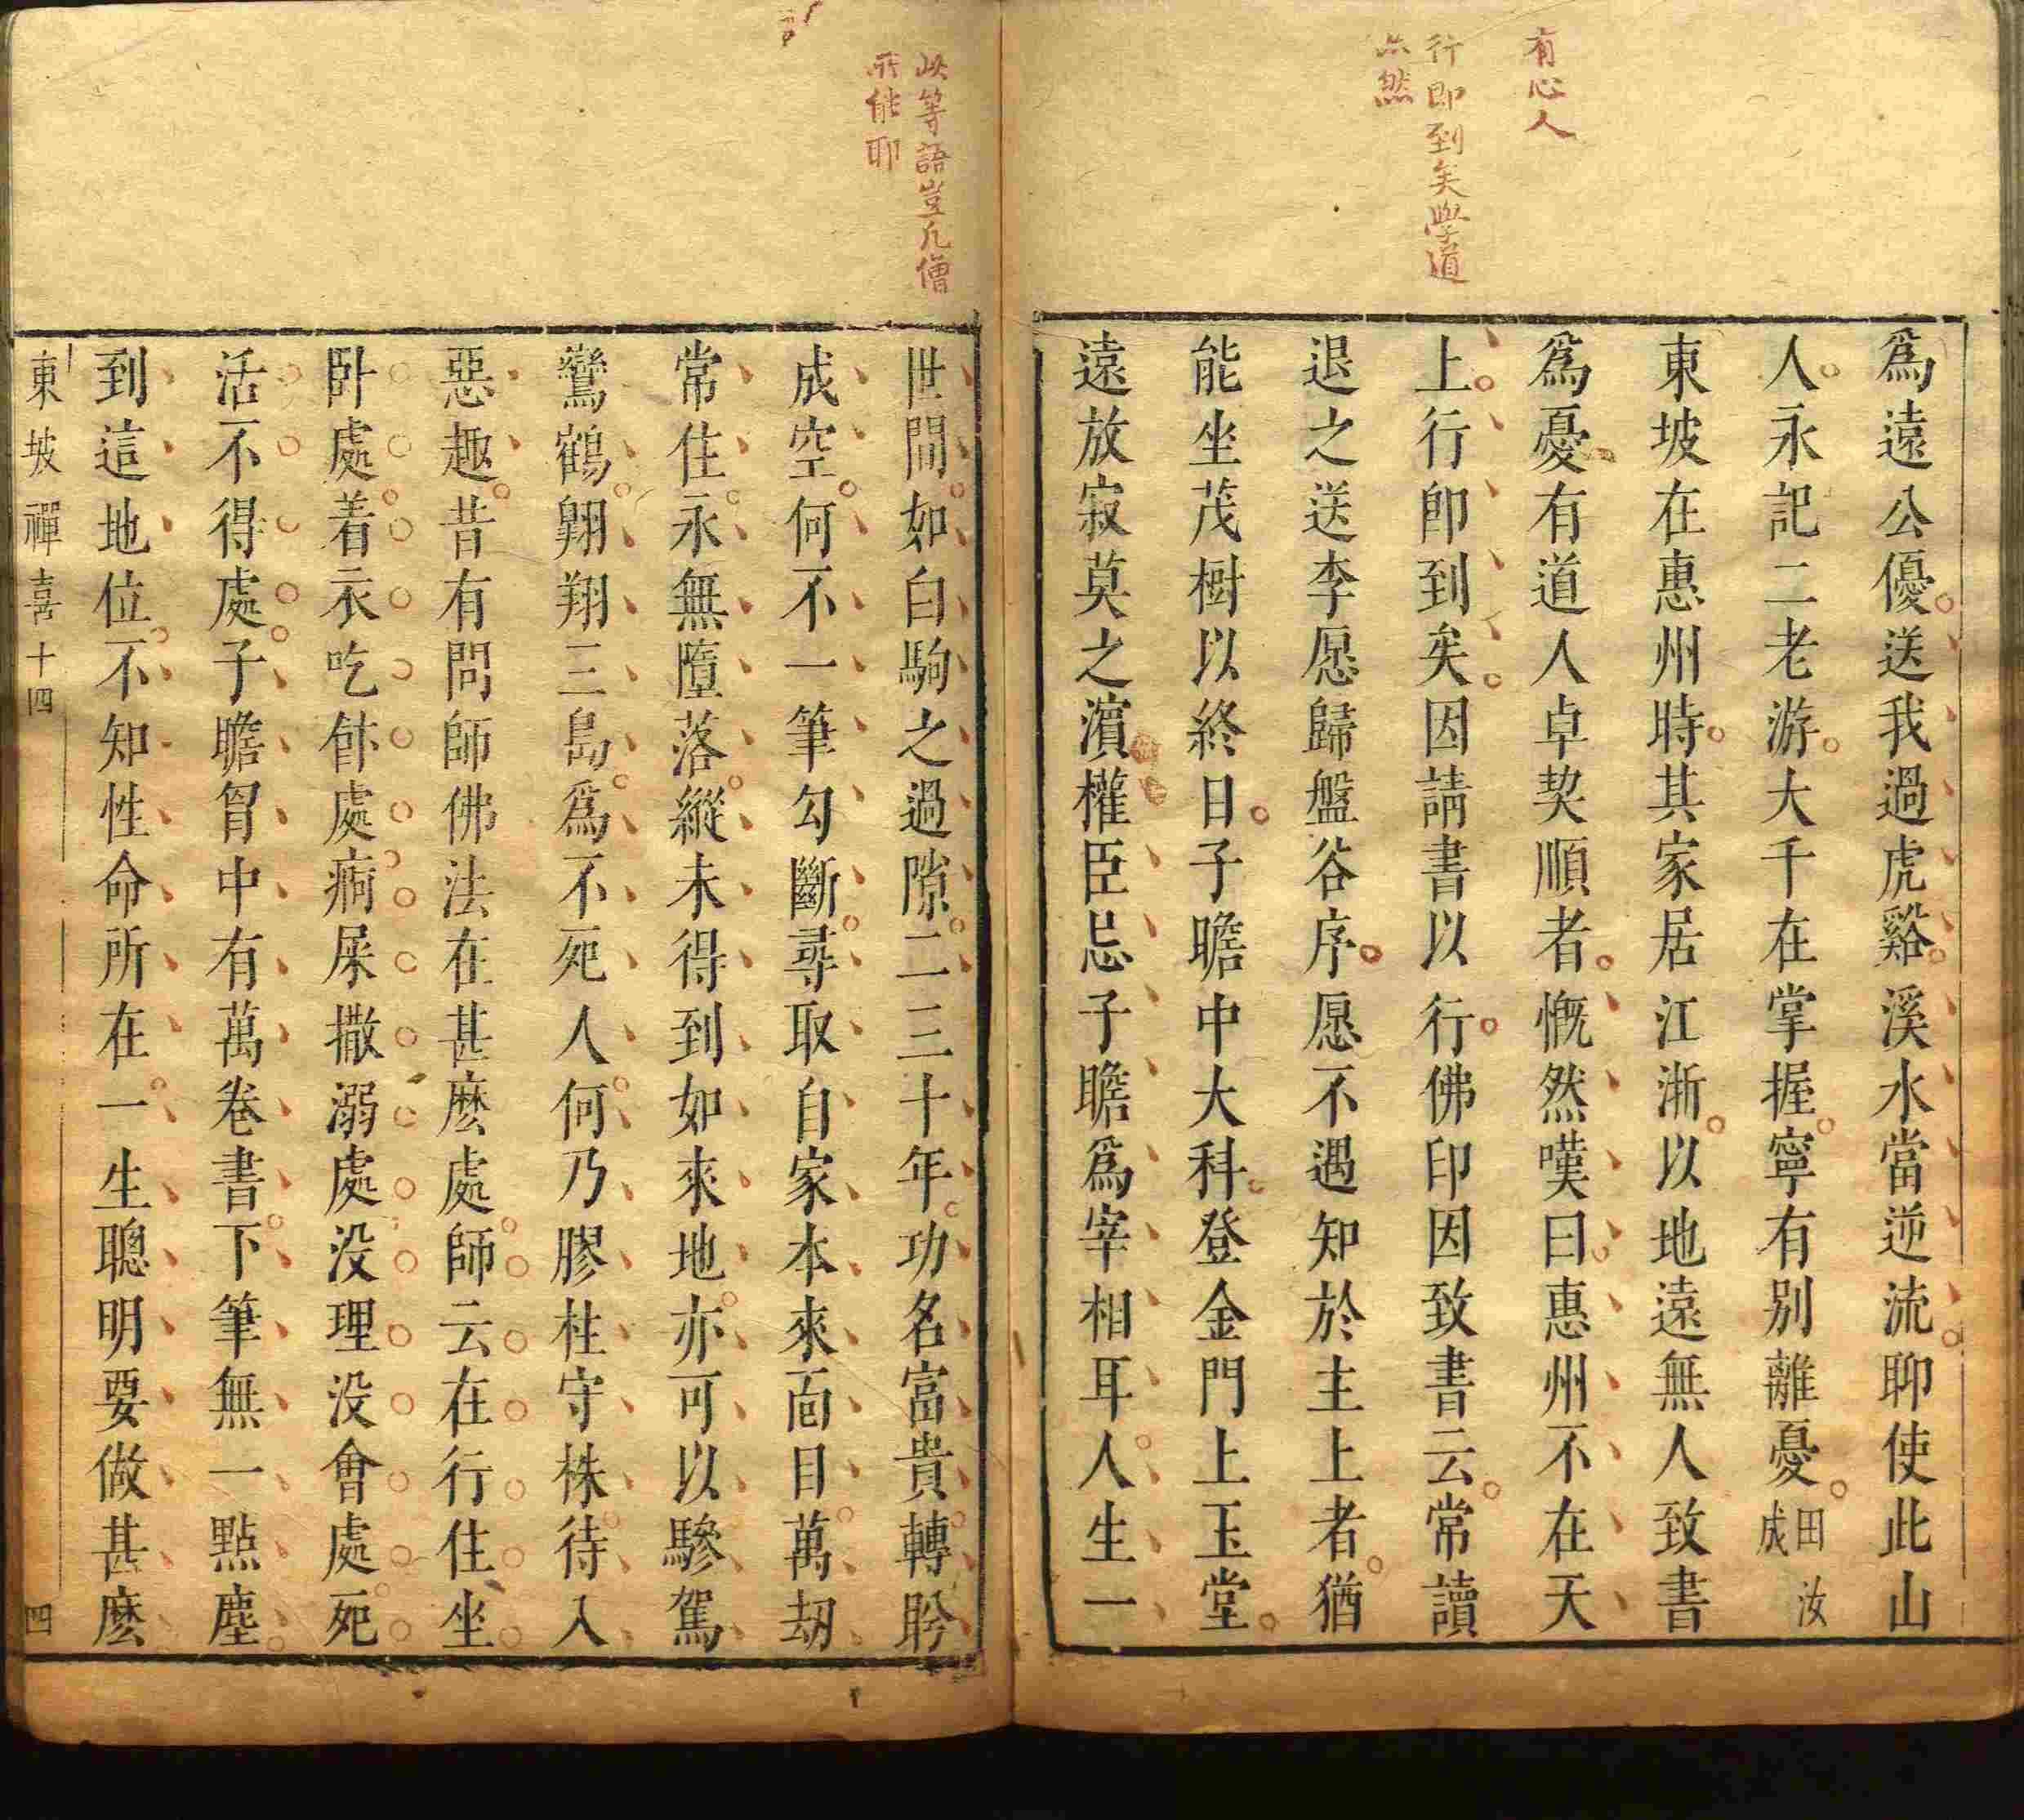 有心人
行即到矣學道
亦然
爲遠公優送我過虎谿溪水當逆流聊使此山
人永記二老游大千在掌握寧有別離憂田汝成
東坡在惠州時其家居江淛以地遠無人致書
爲憂有道人卓契順者慨然嘆曰惠州不在天
上行卽到矣因請書以行佛印因致書云常讀
退之送李愿歸盤谷序愿不遇知於主上者猶
能坐茂樹以終日子瞻中大科登金門上玉堂
遠放寂莫之濵權臣忌子瞻爲宰相耳人生一
此等語豈凡僧
所能耶
世間如白駒之過隙二三十年功名富貴轉盻
成空何不一筆勾斷尋取自家本來面目萬刼
常住永無墮落縱未得到如來地亦可以驂駕
鸞鶴翺翔三島爲不死人何乃膠柱守株待入
惡趣昔有問師佛法在甚麽處師云在行住坐
卧處着衣吃飰處痾屎撒溺處没理没會處死
活不得處子瞻胷中有萬卷書下筆無一點塵
到這地位不知性命所在一生聰明要做甚麽
東坡禪喜十四
四